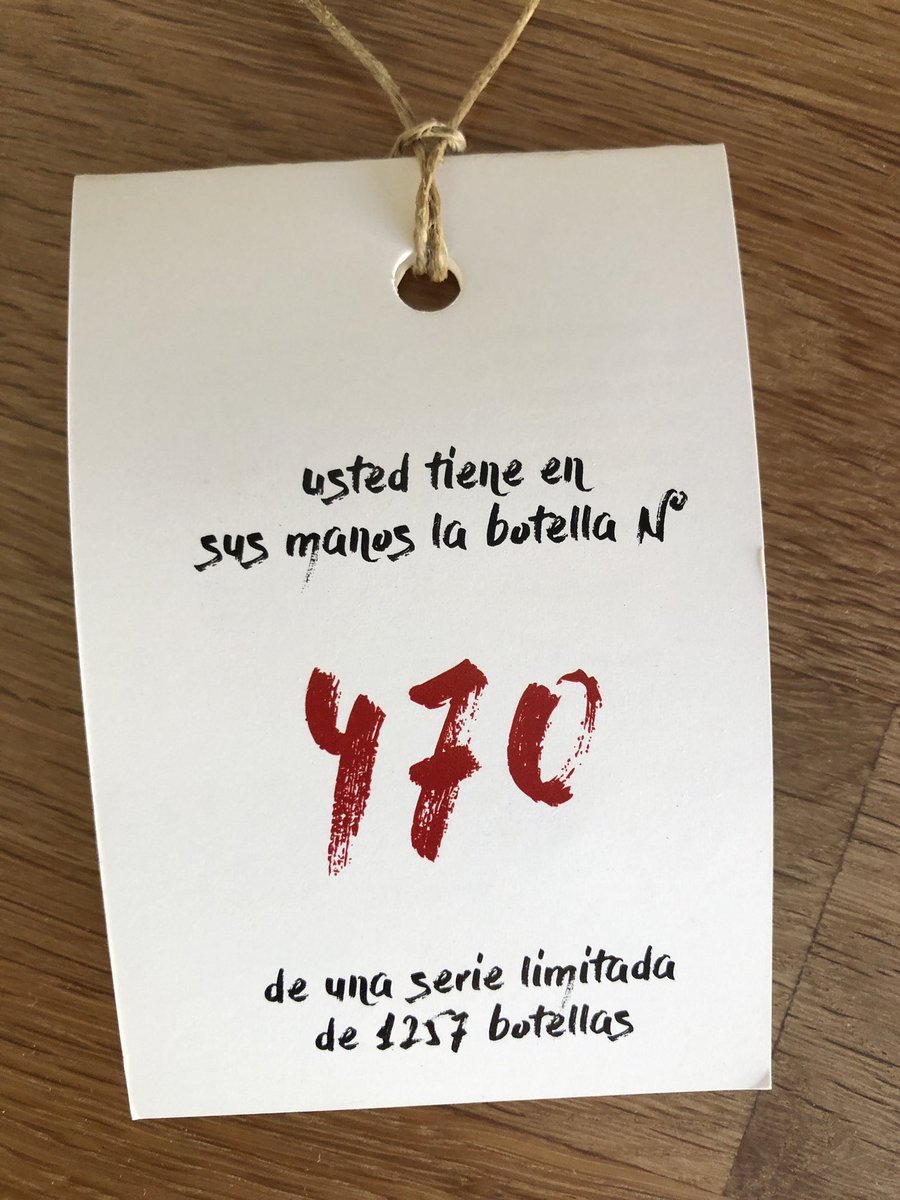 usted tiene en
sus manos la botella Nº
470
de una serie limitada
de 1257 botellas